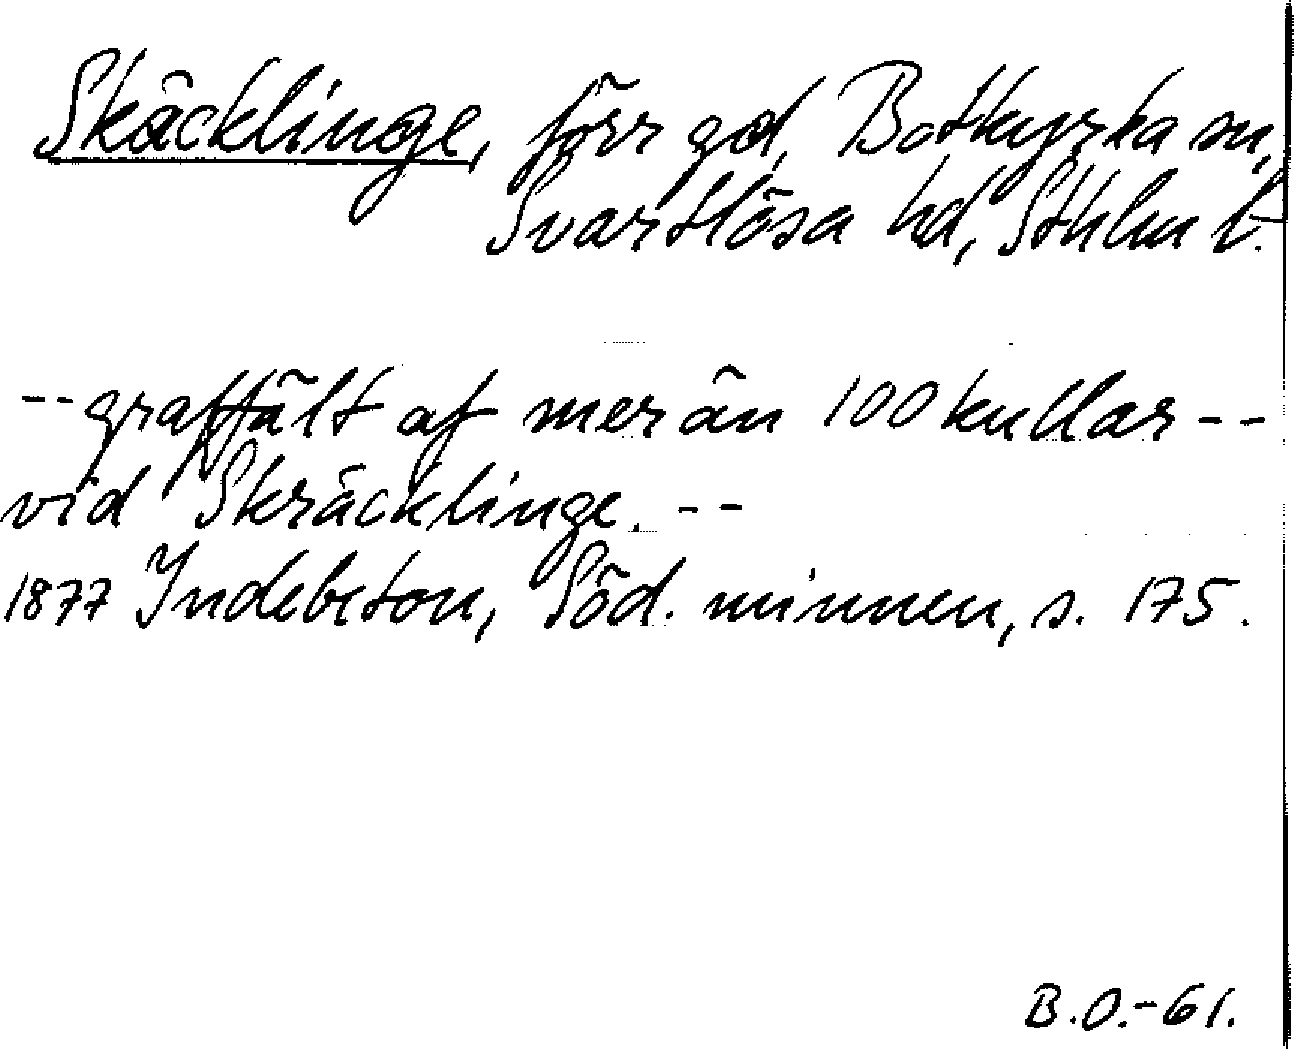 Skäcklinge, förr gd, Botkyrka sn,
Svartlösa hd, Sthlm l.
-- graffält af mer än 100 kullar --
vid Skräcklinge. --
1877 Indebetou, Söd. minnen, s. 175.
B.O.-61.